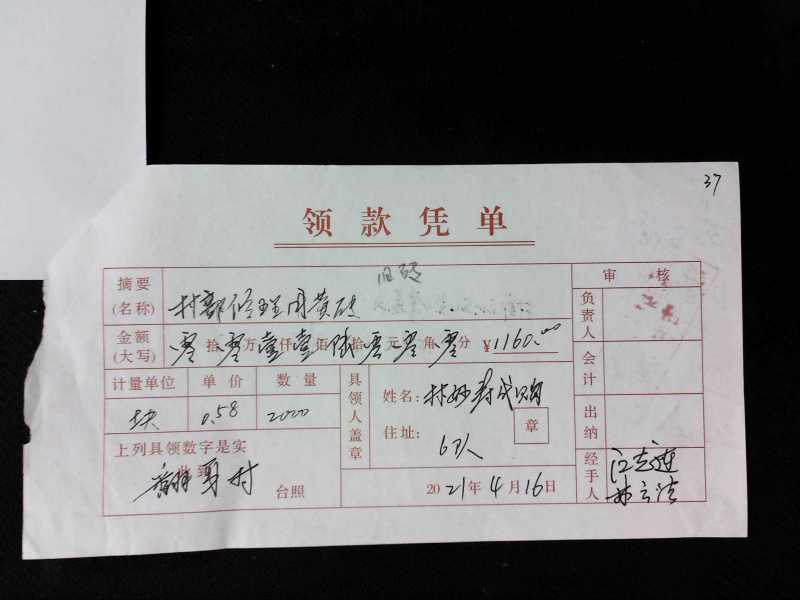 37
领款凭单
旧砖
摘要(名称) 村部修理用黄砖
审核
金额(大写) 零拾零万壹仟壹佰陆拾零元零角零分 ¥1160.00
负责人
计量单位 单价 数量
块 0.58 2000
会计
具领人盖章
姓名: 林妙寿代领
住址: 6队
章
出纳
上列具领数字是实
此致
村 台照
2021年4月16日
经手人